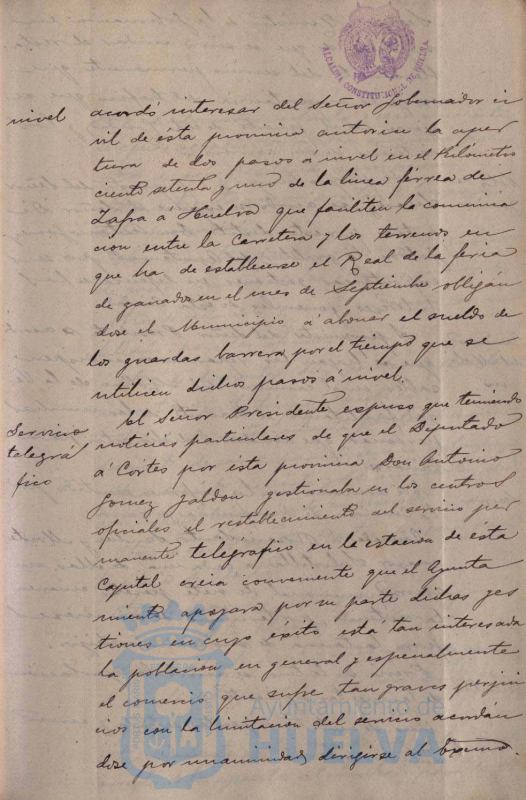 ALCALDIA CONSTITUCIONAL DE HUELVA
nivel
acordó interesar del Señor Gobernador ci
vil de ésta provincia autorice la aper
tura de dos pasos á nivel en el Kilómetro
ciento setenta y uno de la linea férrea de
Zafra á Huelva que faciliten la comunica
cion entre la Carretera y los terrenos en
que ha de establecerse el Real de la feria
de ganados en el mes de Septiembre obligán
dose el Municipio á abonar el sueldo de
los guardas barrera por el tiempo que se
utilicen dichos pasos á nivel.
Servicio
telegrá
fico
El Señor Presidente expuso que teniendo
noticias particulares de que el Diputado
á Cortes por ésta provincia Don Antonio
Gomez Jaldon gestionaba en los centros
oficiales el restablecimiento del servicio per
manente telegráfico en la estacion de ésta
Capital creia conveniente que el Ayunta
miento apoyara por su parte dichas ges
tiones en cuyo éxito está tan interesada
la poblacion en general y especialmente
el comercio que sufre tan graves perjui
cios con la limitacion del servicio acordán
dose por unanimidad dirigirse al Excmo.
Ayuntamiento de
HUELVA